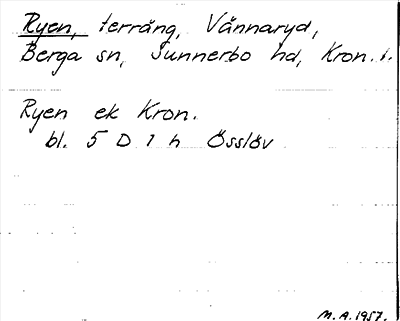 Ryen, terräng, Vännaryd,
Berga sn, Sunnerbo hd, Kron. l.
Ryen ek Kron.
bl. 5 D 1 h Össlöv
M. A. 1957.